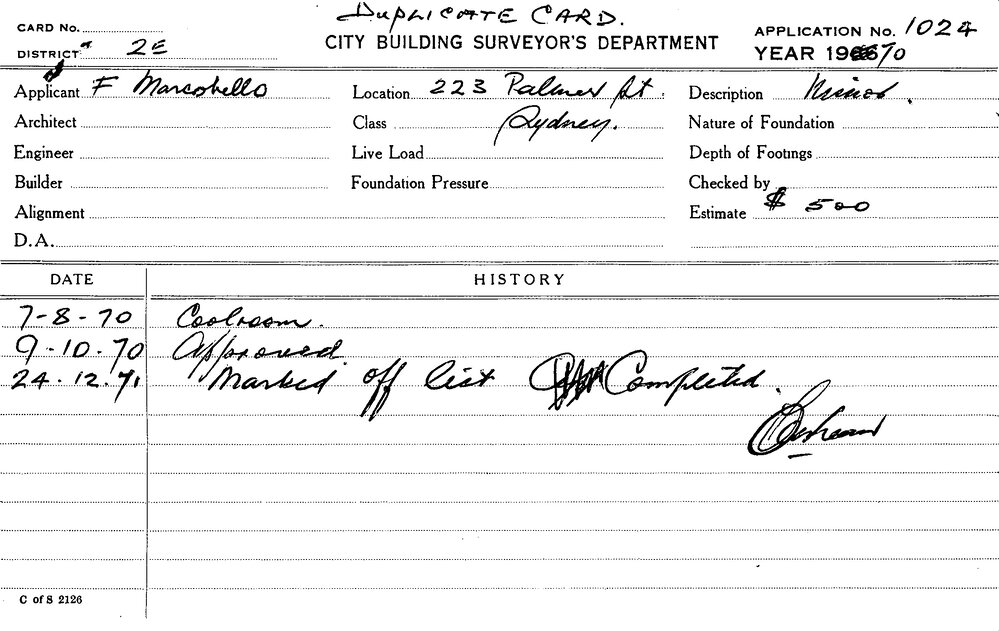 DUPLICATE CARD.
CARD No.
CITY BUILDING SURVEYOR'S DEPARTMENT
APPLICATION No. 1024
DISTRICT 2E
YEAR 1970
Applicant F Marcobello
Location 223 Palmer St.
Description Minor.
Architect
Class Sydney.
Nature of Foundation
Engineer
Live Load
Depth of Footings
Builder
Foundation Pressure
Checked by
Alignment
Estimate $ 500
D.A.
DATE HISTORY
7-8-70 Coolroom.
9-10-70 Approved.
24.12.71 Marked off list Completed.
C of S 2126